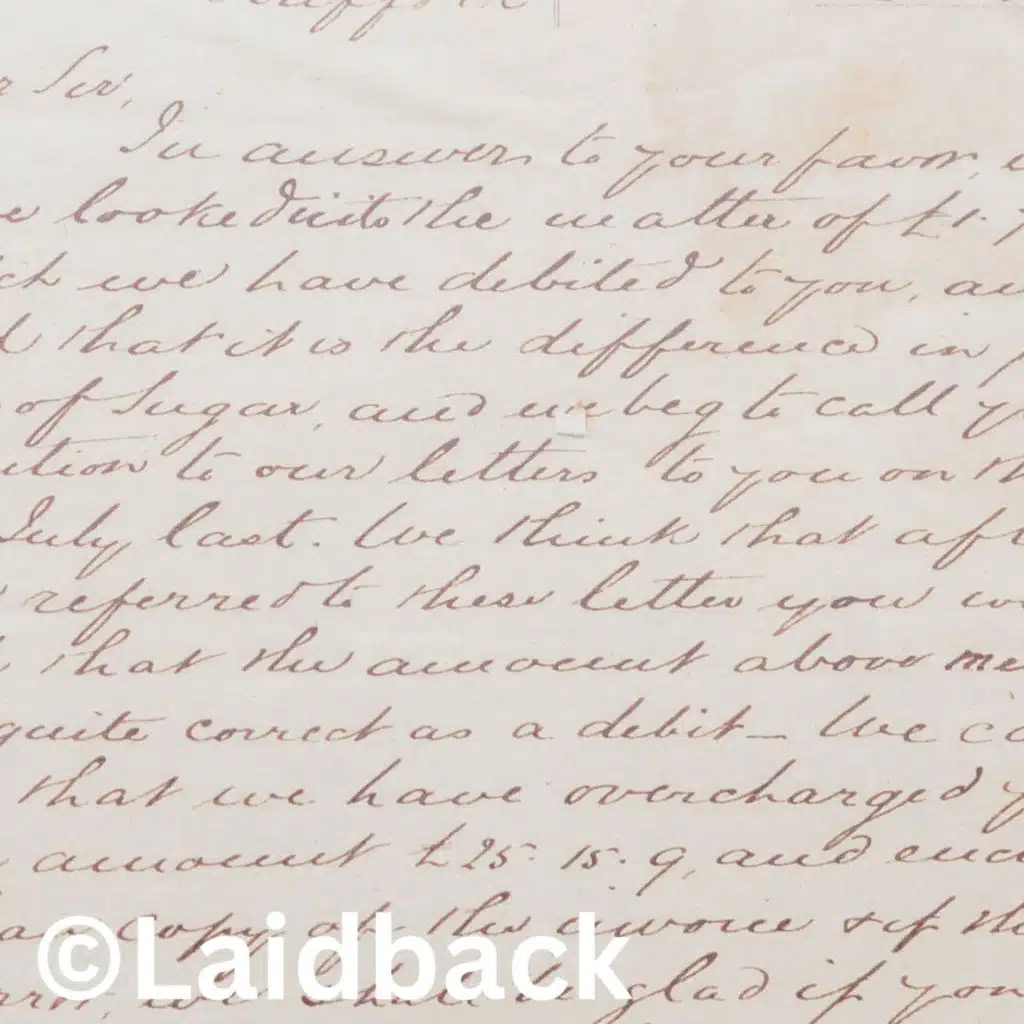 Sir,
In answer to your favor,
looked into the matter of £1. 7
we have debited to you, an
that it is the difference in p
of Sugar, and we beg to call y
ution to our letters to you on th
July last. We think that aft
referred to these letter you w
that the amount above me
quite correct as a debit_ We ca
that we have overcharged y
amount £25. 15. 9, and enc
copy of the invoice & if th
we shall be glad if you
©Laidback